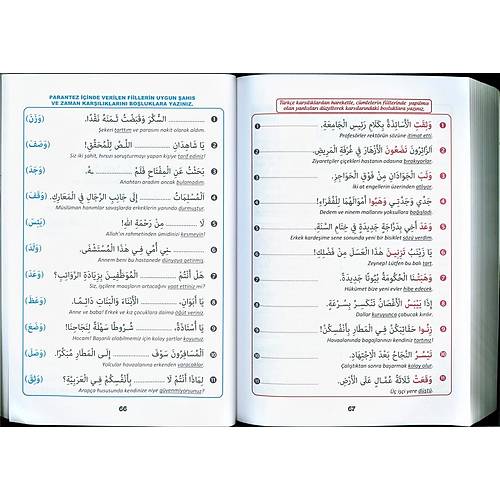 PARANTEZ İÇİNDE VERİLEN FİİLLERİN UYGUN ŞAHIS
VE ZAMAN KARŞILIKLARINI BOŞLUKLARA YAZINIZ.
1 ............ السُّكَّرَ وَقَبَضْتُ ثَمَنَهُ نَقْدًا. (وَزَنَ)
Şekeri tarttım ve parasını nakit olarak aldım.
2 يَا شَاهِدَانِ ............ اللِّصَّ لِلْمُحَقِّقِ! (وَصَفَ)
Siz iki şahit, hırsızı soruşturmayı yapan kişiye tarif ediniz!
3 بَحَثْتُ عَنِ الْمِفْتَاحِ فَلَمْ ............هُ. (وَجَدَ)
Anahtarı aradım ancak bulamadım.
4 الْمُسْلِمَاتُ ............ إِلَى جَانِبِ الرِّجَالِ فِي الْمَعَارِكِ. (وَقَفَ)
Müslüman hanımlar savaşlarda erkeklerin yanında durmuştur.
5 لَا ............ مِنْ رَحْمَةِ اللهِ! (يَئِسَ)
Allah'ın rahmetinden ümidinizi kesmeyin!
6 ............نِي أُمِّي فِي هَذَا الْمُسْتَشْفَى. (وَلَدَ)
Annem beni bu hastanede dünyaya getirdi.
7 هَلْ أَنْتُمْ ............ الْمُوَظَّفِينَ بِزِيَادَةِ الرَّوَاتِبِ؟ (وَعَدَ)
Siz, işçilere maaşların artacağını vaat ettiniz mi?
8 يَا أَبَوَانِ، ............ الْأَبْنَاءَ وَالْبَنَاتِ دَائِمًا. (وَعَظَ)
Anne ve baba! Erkek ve kız çocuklara daima öğüt veriniz
9 يَا أُسْتَاذَةُ، ............ شُرُوطًا سَهْلَةً لِنَجَاحِنَا! (وَضَعَ)
Hocam! Başarılı olabilmemiz için kolay şartlar koyunuz.
10 الْمُسَافِرُونَ سَوْفَ ............ إِلَى الْمَطَارِ مُبَكِّرًا. (وَصَلَ)
Yolcular havaalanına erkenden varacaklar.
11 لِمَاذَا أَنْتُمْ لَا ............ بِأَنْفُسِكُمْ فِي الْعَرَبِيَّةِ؟ (وَثِقَ)
Arapça hususunda kendinize niye güvenmiyorsunuz?
66
Türkçe karşılıklardan hareketle, cümlelerin fiillerinde yapılmış
olan yanlışları düzelterek karşılarındaki boşluklara yazınız.
1 وَثِقَتِ الْأَسَاتِذَةُ بِكَلَامِ رَئِيسِ الْجَامِعَةِ.
Profesörler rektörün sözüne itimat etti.
2 الزَّائِرُونَ تَضَعُونَ الْأَزْهَارَ فِي غُرْفَةِ الْمَرِيضِ.
Ziyaretçiler çiçekleri hastanın odasına bırakıyorlar.
3 وَثَبَ الْجَوَادَانِ مِنْ فَوْقِ الْحَوَاجِزِ.
İki at engellerin üzerinden atlıyor.
4 جَدِّي وَجَدَّتِي وَهَبُوا أَمْوَالَهُمَا لِلْفُقَرَاءِ!
Dedem ve ninem mallarını yoksullara bağışladı.
5 وَعَدَ أَخِي بِدَرَّاجَةٍ جَدِيدَةٍ فِي خِتَامِ السَّنَةِ.
Erkek kardeşime sene sonunda yeni bir bisiklet söz verdim.
6 يَا زَيْنَبُ تَزِنِينَ هَذَا الْعَسَلَ مِنْ فَضْلِكِ!
Zeynep! Lütfen bu balı tart.
7 وَهَبْتَنَا الْحُكُومَةُ بُيُوتًا جَدِيدَةً.
Hükümet bize yeni evler hibe edecek.
8 إِذَا يَيْبَسُ الْأَغْصَانُ تَنْكَسِرُ بِسُرْعَةٍ.
Dallar kuruyunca çabucak kırılır.
9 زِنُوا حَقَائِبَكُنَّ فِي الْمَطَارِ بِأَنْفُسِكُنَّ!
Havaalanında bagajlarınızı kendiniz tartın!
10 تَيْسُرُ النَّجَاحُ بَعْدَ الِاجْتِهَادِ.
Çalıştıktan sonra başarmak kolay olur.
11 وَقَعَتْ ثَلَاثَةُ عُمَّالٍ عَلَى الْأَرْضِ.
Üç işçi yere düştü.
67